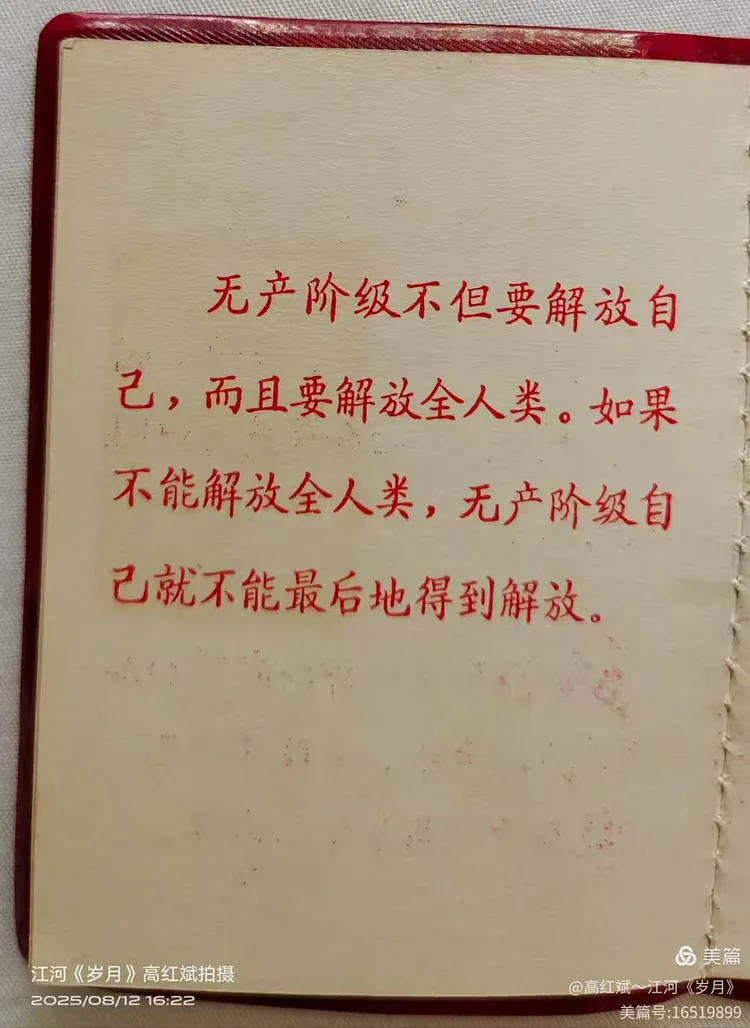 无产阶级不但要解放自
己，而且要解放全人类。如果
不能解放全人类，无产阶级自
己就不能最后地得到解放。
江河《岁月》高红斌拍摄
2025/08/12 16:22
美篇
@高红斌～江河《岁月》
美篇号:16519899